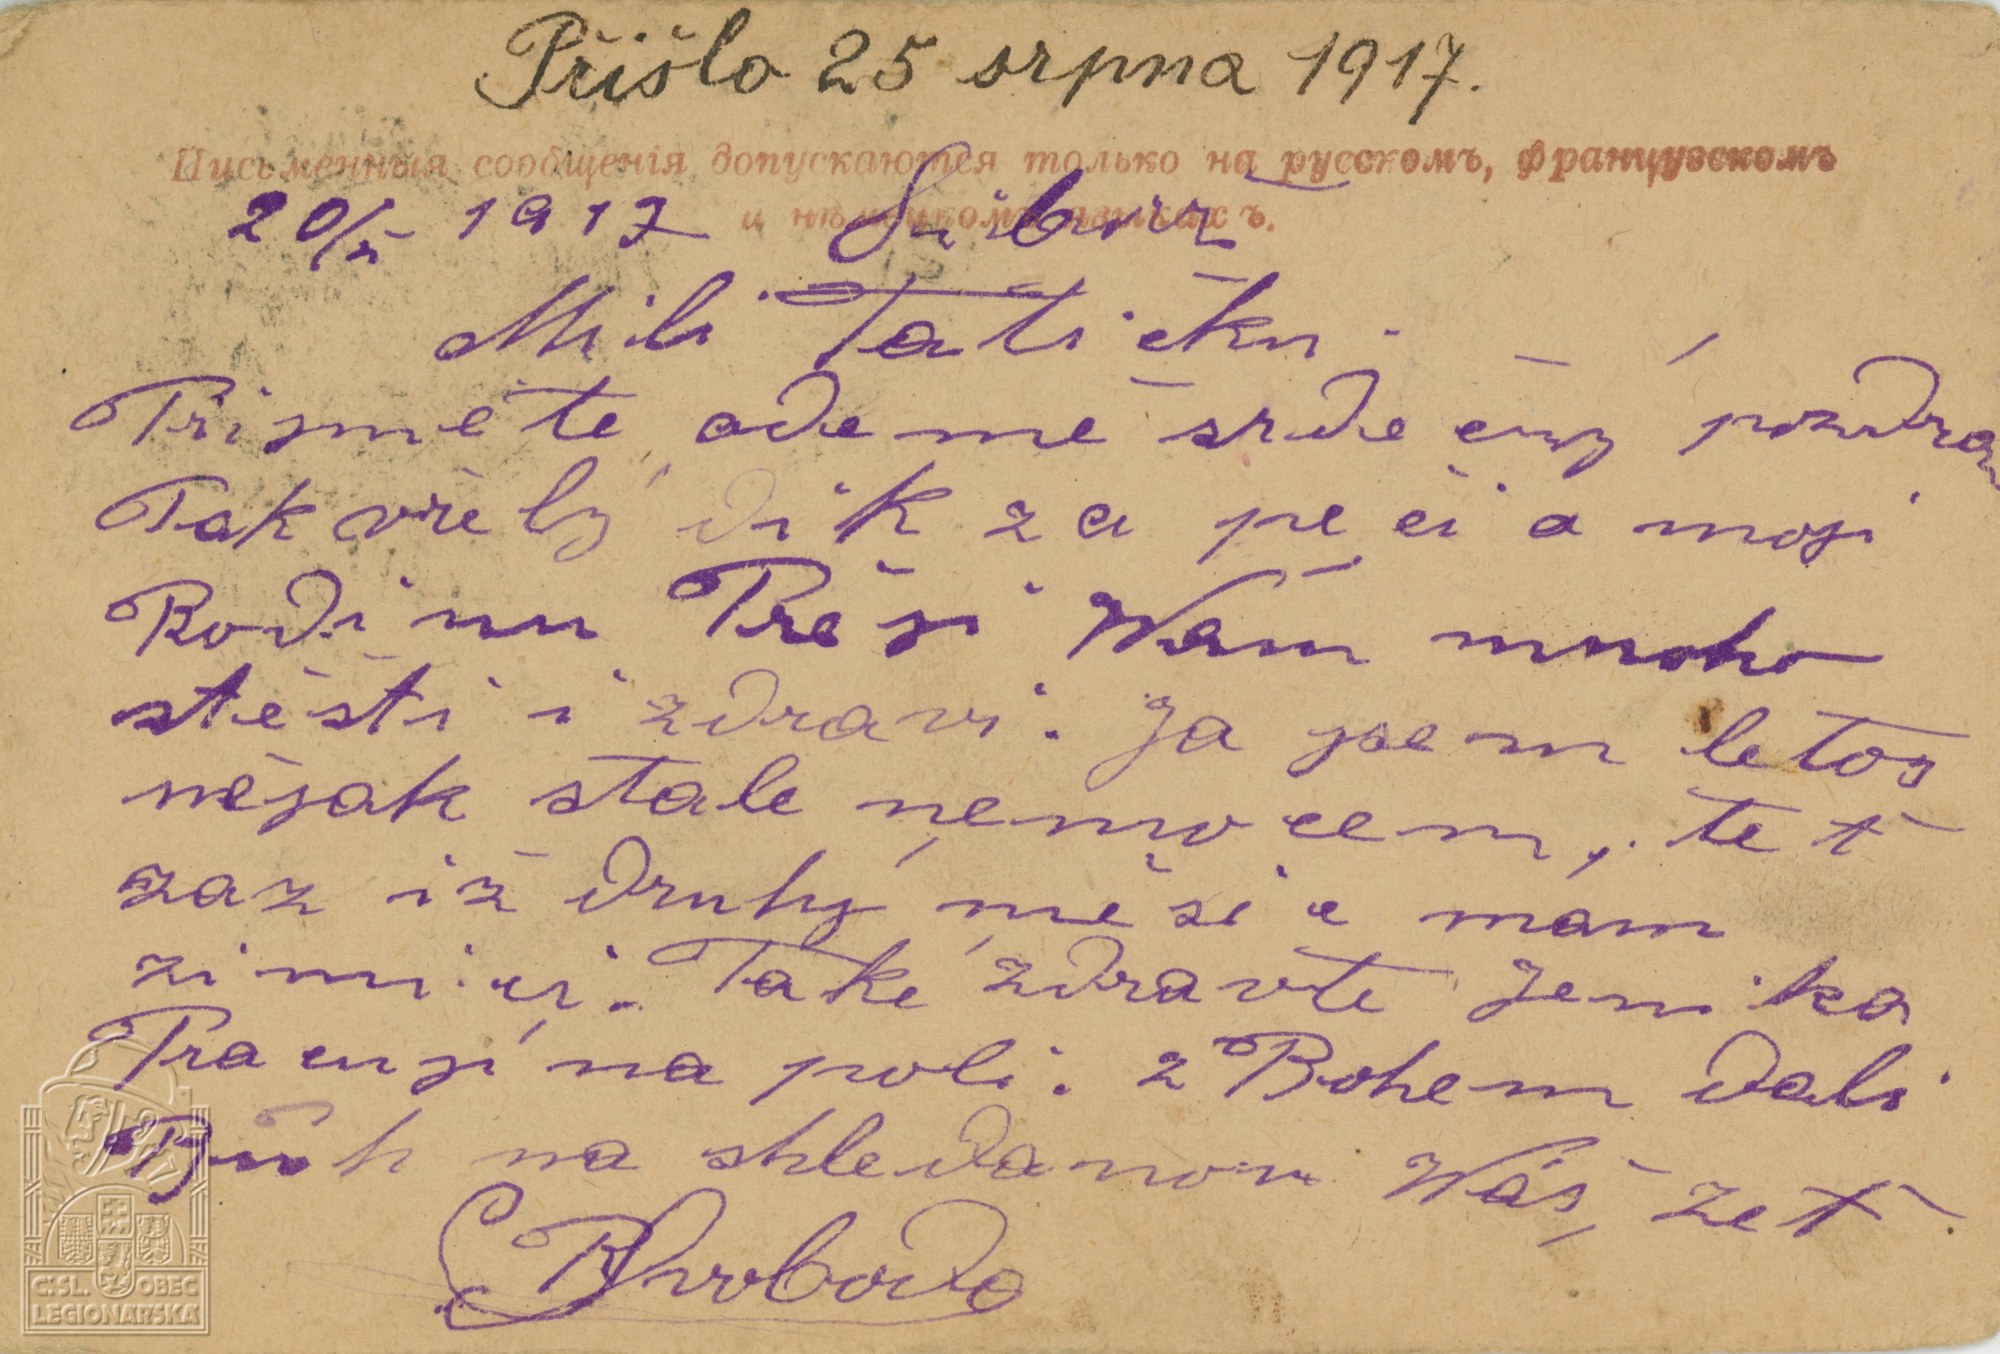 Přišlo 25 srpna 1917.
Письменныя сообщенія допускаются только на русскомъ, французскомъ
и нѣмецкомъ языкахъ.
1917
Mili Tatičku.
Prijměte ode mě srdečny pozdrav
Tak vřely dik za peči a moji
Rodinu Přeji Wám mnoho
stěsti i zdravi. Ja jsem letos
nějak stale nemocem, teť
zaz iž druhy měsic mam
zimici. Take zdravte Jenika
Pracuji na poli. z Bohem dali
Bůh na shledanou Wáš zeť
Svoboda
Č.SL. OBEC
LEGIONÁŘSKÁ